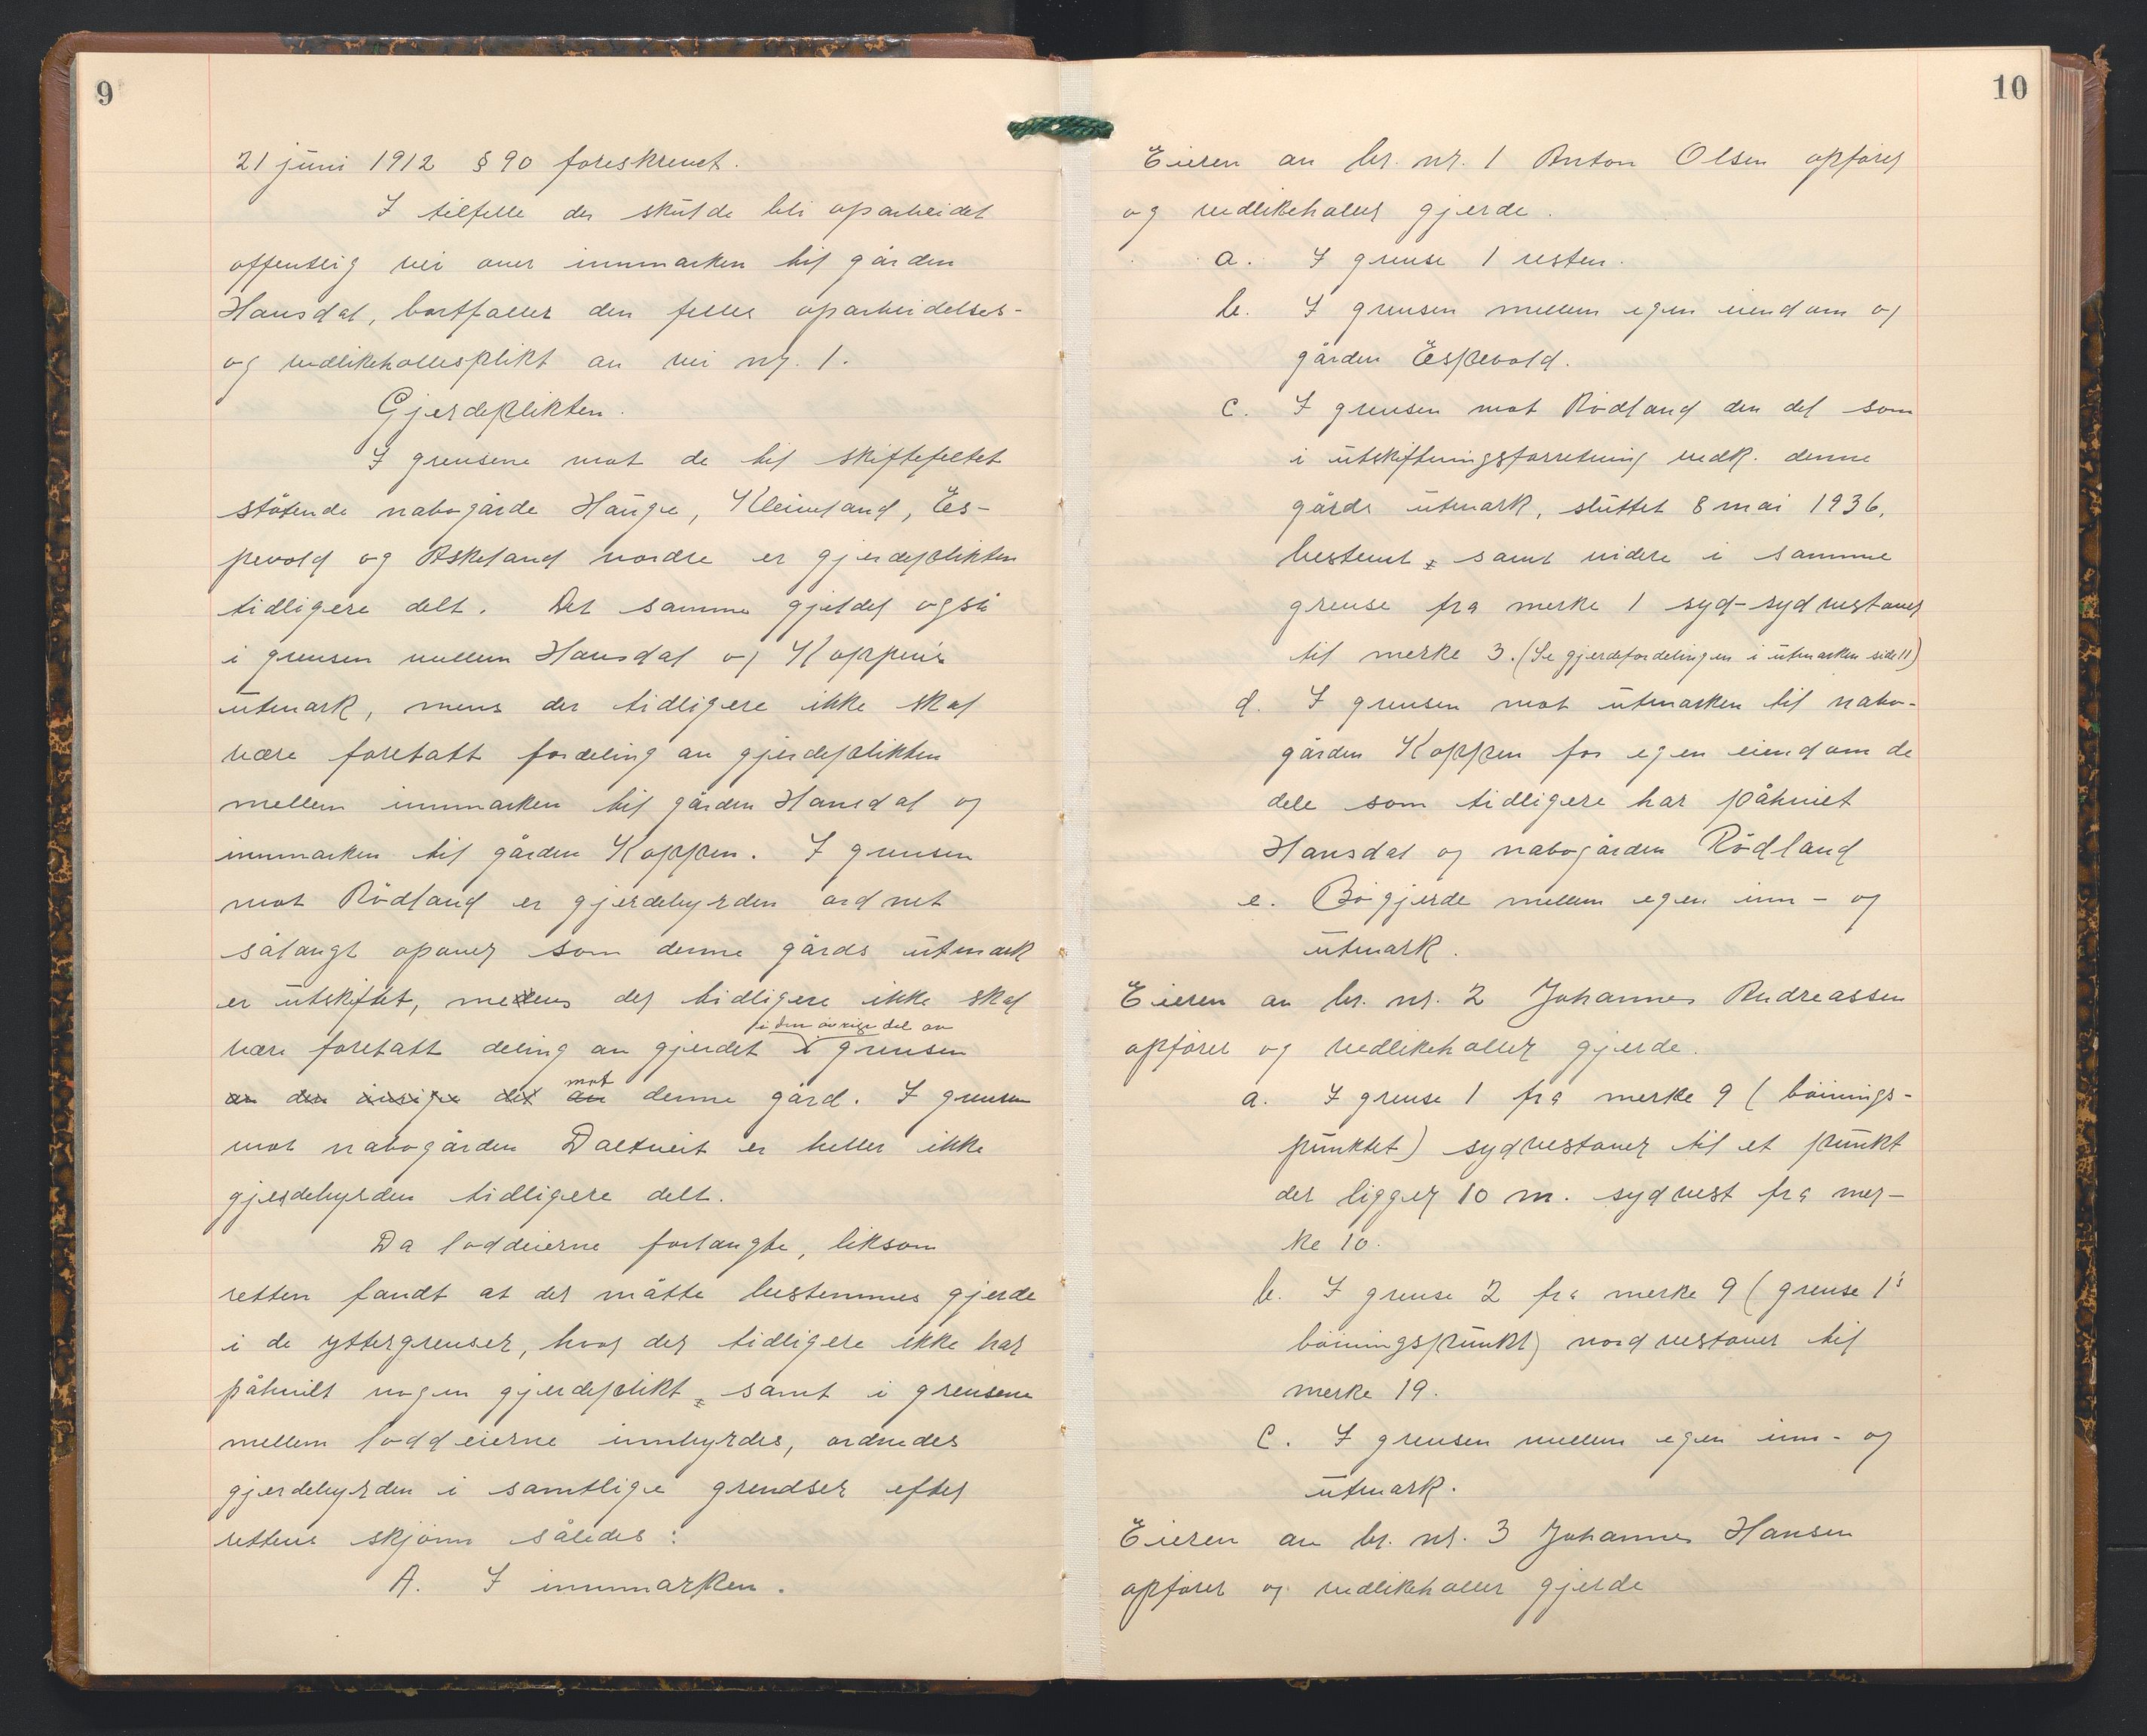 9
21 juni 1912 § 90 foreskrevet.
I tilfelle der skulde bli oparbeidet
offentlig vei over innmarken til gården
Hansdal, bortfaller den felles oparbeidelses-
og vedlikeholdesplikt av vei nr. 1.
Gjerdeplikten.
I grensene mot de til skiftefeltet
stötende nabogårde Hauge, Kleiveland, Es-
pevold og Askeland nordre er gjerdeplikten
tidligere delt. Det samme gjelder også
i grensen mellem Hansdal og Koppens
utmark, mens der tidligere ikke skal
være foretatt fordeling av gjerdeplikten
mellem innmarken til gården Hansdal og
innmarken til gården Koppen. I grensen
mot Rödland er gjerdebyrden ordnet
sålangt opover som denne gårds utmark
er utskiftet, medens der tidligere ikke skal
i den övrige del av
være foretatt deling av gjerdet i grensen
mot
av den övrige del av denne gård. I grensen
mot nabogården Daltveit er heller ikke
gjerdebyrden tidligere delt.
Da loddeierne forlangte, liksom
retten fandt at der måtte bestemmes gjerde
i de yttergrenser, hvor der tidligere ikke har
påhvilt nogen gjerdeplikt, samt i grensene
mellem loddeierne innbyrdes, ordnedes
gjerdebyrden i samtlige grendser efter
rettens skjönn således:
A. I innmarken.
10
Eieren av br. nr. 1 Anton Olsen opförer
og vedlikeholder gjerde.
a. I grense 1 resten.
b. I grensen mellem egen eiendom og
gården Espevold.
c. I grensen mot Rödland den del som
i utskiftningsforretning vedk. denne
gårds utmark, sluttet 8 mai 1936,
bestemt, samt videre i samme
grense fra merke 1 syd-sydvestover
til merke 3. (Se gjerdefordelingen i utmarken side 11)
d. I grensen mot utmarken til nabo-
gården Koppen for egen eiendom de
dele som tidligere har påhvilet
Hansdal og nabogården Rödland
e. Bögjerde mellem egen inn- og
utmark.
Eieren av br. nr. 2 Johannes Andreassen
opförer og vedlikeholder gjerde.
a. I grense 1 fra merke 9 (böinings-
punktet) sydvestover til et punkt
der ligger 10 m. sydvest fra mer-
ke 10.
b. I grense 2 fra merke 9 (grense 1's
böiningspunkt) nordvestover til
merke 19.
c. I grensen mellem egen inn- og
utmark.
Eieren av br. nr. 3 Johannes Hansen
opförer og vedlikeholder gjerde